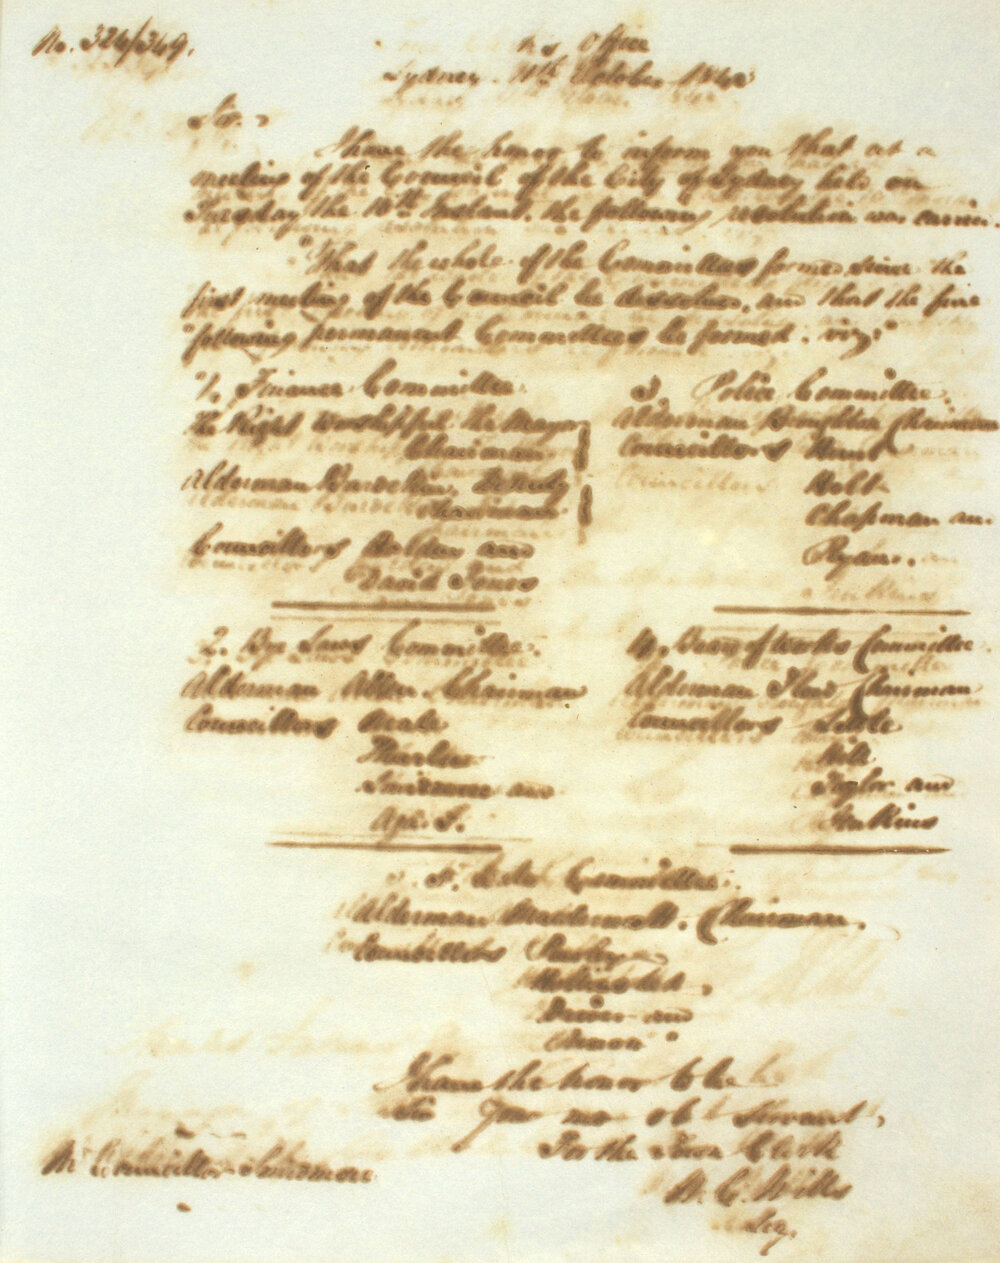 No. 324/349.
Office
Sydney. 11th October 184
Sir,
I have the honor to inform you that at a
meeting of the Council of the City of Sydney held on
Tuesday the Instant, the following resolution was carried.
"That the whole of the Committees formed since the
first meeting of the Council be dissolved, and that the five
following permanent Committees be formed. viz;
1. Finance Committee.
The Right Worshipful the Mayor
Chairman
Alderman Deputy
Chairman
Councillors Holden and
David Jones
3. Police Committee.
Alderman Broughton Chairman
Councillors Hunt
Holt
Chapman an
Ryan.
2. Bye Laws Committee.
Alderman Allen. Chairman
Councillors Neale
Thurlow
Smidmore and
4. Board of Works Committee.
Alderman Flood Chairman
Councillors Little
Hill
Taylor and
Jenkins
5. Committee.
Alderman Macdermott. Chairman.
Councillors
Hollinshed,
Driver and
I have the honor to be
Sir Your mo ob t Servant,
For the Town Clerk
W. C. Wills
Mr Councillor Smidmore.